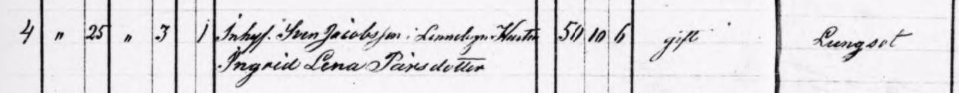 4 " 25 " 3 1 Inhys. Sven Jacobsson i Linneby Hustru 50 10 6 gift Lungsot
Ingrid Lena Pärsdotter